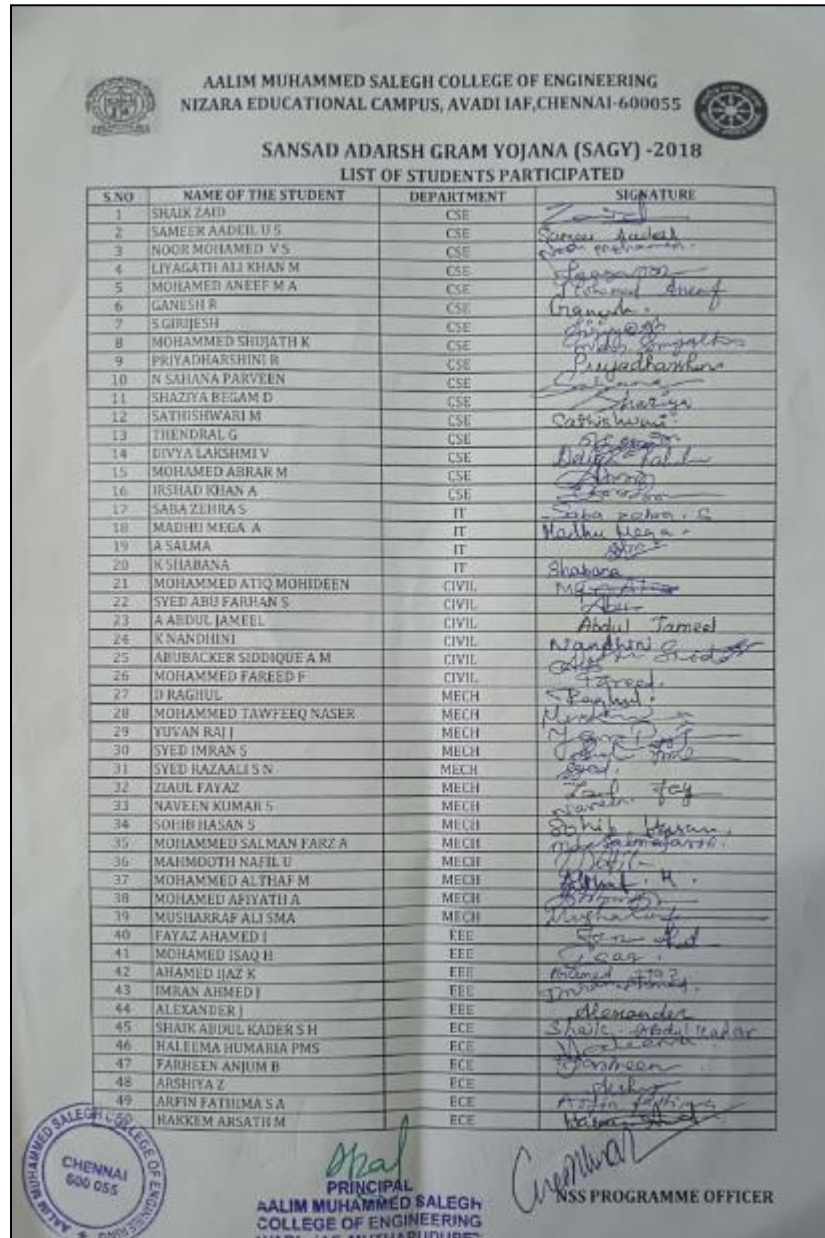 AALIM MUHAMMED SALEGH COLLEGE OF ENGINEERING
NIZARA EDUCATIONAL CAMPUS, AVADI IAF,CHENNAI-600055
SANSAD ADARSH GRAM YOJANA (SAGY) -2018
LIST OF STUDENTS PARTICIPATED
S.NO NAME OF THE STUDENT DEPARTMENT SIGNATURE
1 SHAIK ZAID CSE
2 SAMEER AADEIL U S CSE Sameer Aadeil
3 NOOR MOHAMED V S CSE Noor Mohamed.
4 LIYAGATH ALI KHAN M CSE
5 MOHAMED ANEEF M A CSE Mohamed Aneef
6 GANESH R CSE Ganesh.
7 S GIRIJESH CSE Girijesh
8 MOHAMMED SHUJATH K CSE
9 PRIYADHARSHINI R CSE Priyadharshini
10 N SAHANA PARVEEN CSE Sahana
11 SHAZIYA BEGAM D CSE Shaziya
12 SATHISHWARI M CSE Sathishwari.
13 THENDRAL G CSE
14 DIVYA LAKSHMI V CSE
15 MOHAMED ABRAR M CSE
16 IRSHAD KHAN A CSE
17 SABA ZEHRA S IT Saba zehra. S
18 MADHU MEGA A IT Madhu Mega.
19 A SALMA IT
20 K SHABANA IT Shabana
21 MOHAMMED ATIQ MOHIDEEN CIVIL
22 SYED ABU FARHAN S CIVIL Abu
23 A ABDUL JAMEEL CIVIL Abdul Jameel
24 K NANDHINI CIVIL Nandhini
25 ABUBACKER SIDDIQUE A M CIVIL
26 MOHAMMED FAREED F CIVIL Fareed.
27 D RAGHUL MECH Raghul.
28 MOHAMMED TAWFEEQ NASER MECH
29 YUVAN RAJ J MECH
30 SYED IMRAN S MECH
31 SYED RAZAALI S N MECH Syed.
32 ZIAUL FAYAZ MECH
33 NAVEEN KUMAR S MECH Naveen.
34 SOHIB HASAN S MECH Sohib Hasan.
35 MOHAMMED SALMAN FARZ A MECH
36 MAHMOOTH NAFIL U MECH Nafil
37 MOHAMMED ALTHAF M MECH Althaf. M.
38 MOHAMED AFIYATH A MECH
39 MUSHARRAF ALI SMA MECH
40 FAYAZ AHAMED I EEE
41 MOHAMED ISAQ H EEE Isaq.
42 AHAMED IJAZ K EEE Ahamed Ijaz
43 IMRAN AHMED J EEE Imran Ahmed.
44 ALEXANDER J EEE Alexander
45 SHAIK ABDUL KADER S H ECE Shaik Abdul Kadar
46 HALEEMA HUMARIA PMS ECE Haleema
47 FARHEEN ANJUM B ECE Farheen
48 ARSHIYA Z ECE
49 ARFIN FATHIMA S A ECE Arfin fathima
50 HAKKEM ARSATH M ECE
AALIM MUHAMMED SALEGH COLLEGE OF ENGINEERING
CHENNAI
600 055
PRINCIPAL
AALIM MUHAMMED SALEGH
COLLEGE OF ENGINEERING
NSS PROGRAMME OFFICER